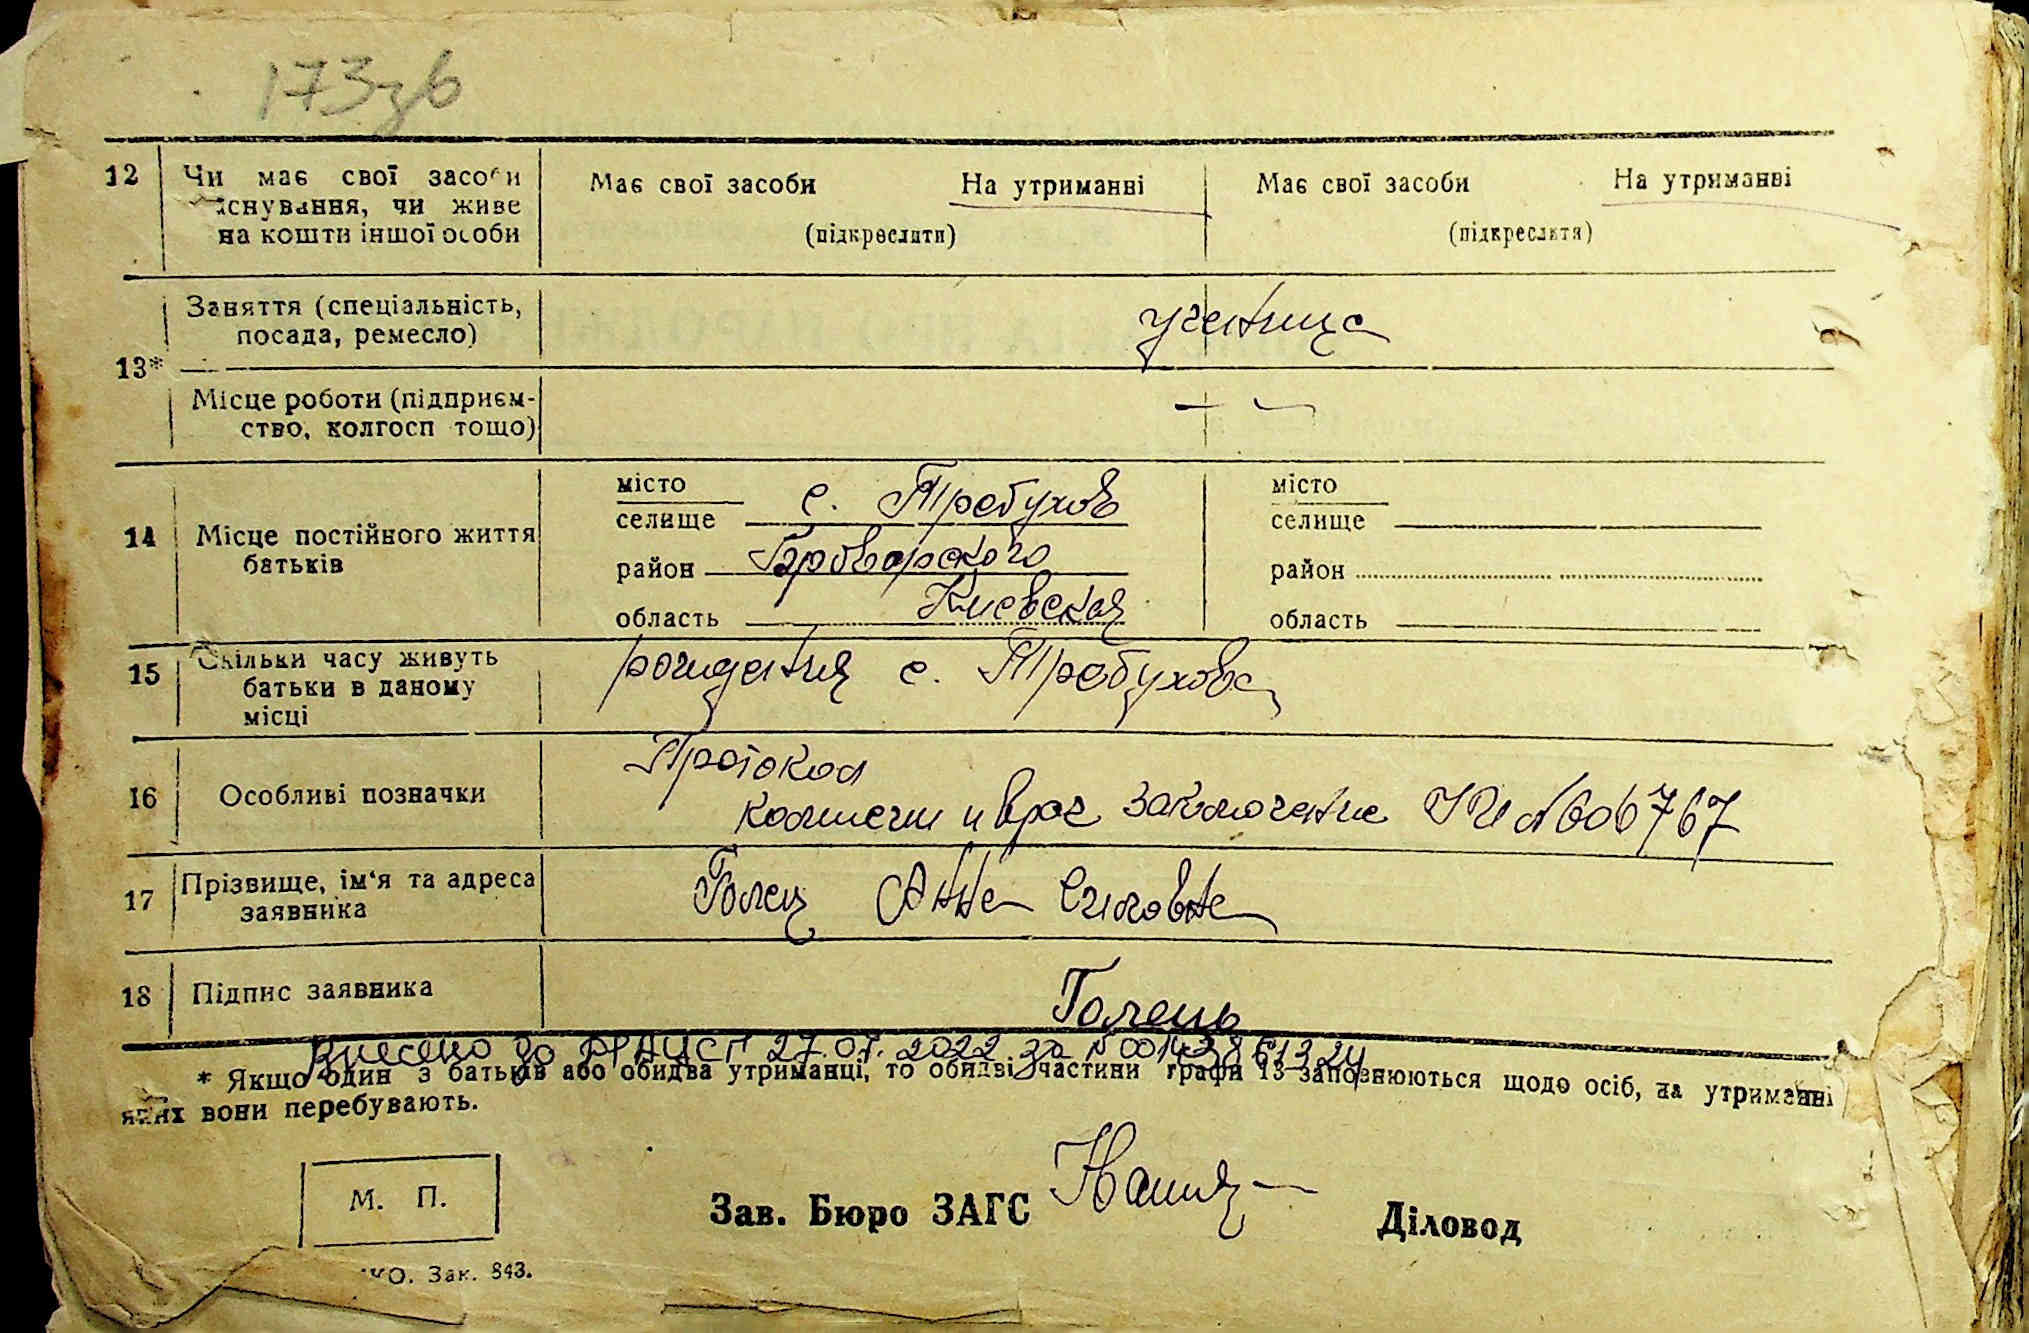 173зв
12 Чи має свої засоби Має свої засоби На утриманні Має свої засоби На утриманні
існування, чи живе (підкреслити) (підкреслити)
на кошти іншої особи
Заняття (спеціальність, ученица
посада, ремесло)
13*
Місце роботи (підприєм-
ство, колгосп тощо)
місто с. Требухов місто
селище селище
14 Місце постійного життя
батьків
район Броварского район
область Киевская область
15 Скільки часу живуть рождения с. Требухова
батьки в даному
місці
Протокол
16 Особливі позначки комисии и врач заключение № 606767
17 Прізвище, ім'я та адреса Голец Анна
заявника
18 Підпис заявника Голець
Внесено до ДРАЦСГ 27.07.2022 за №
* Якщо один з батьків або обидва утриманці, то обидві частини графи 13 заповнюються щодо осіб, на утриманні
яких вони перебувають.
М. П.
Зав. Бюро ЗАГС Діловод
Зак. 843.